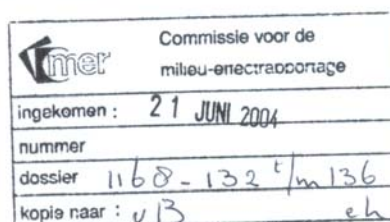 mer
Commissie voor de
milieu-effectrapportage
ingekomen : 21 JUNI 2004
nummer
dossier 1168-132 t/m 136
kopie naar : vB eh